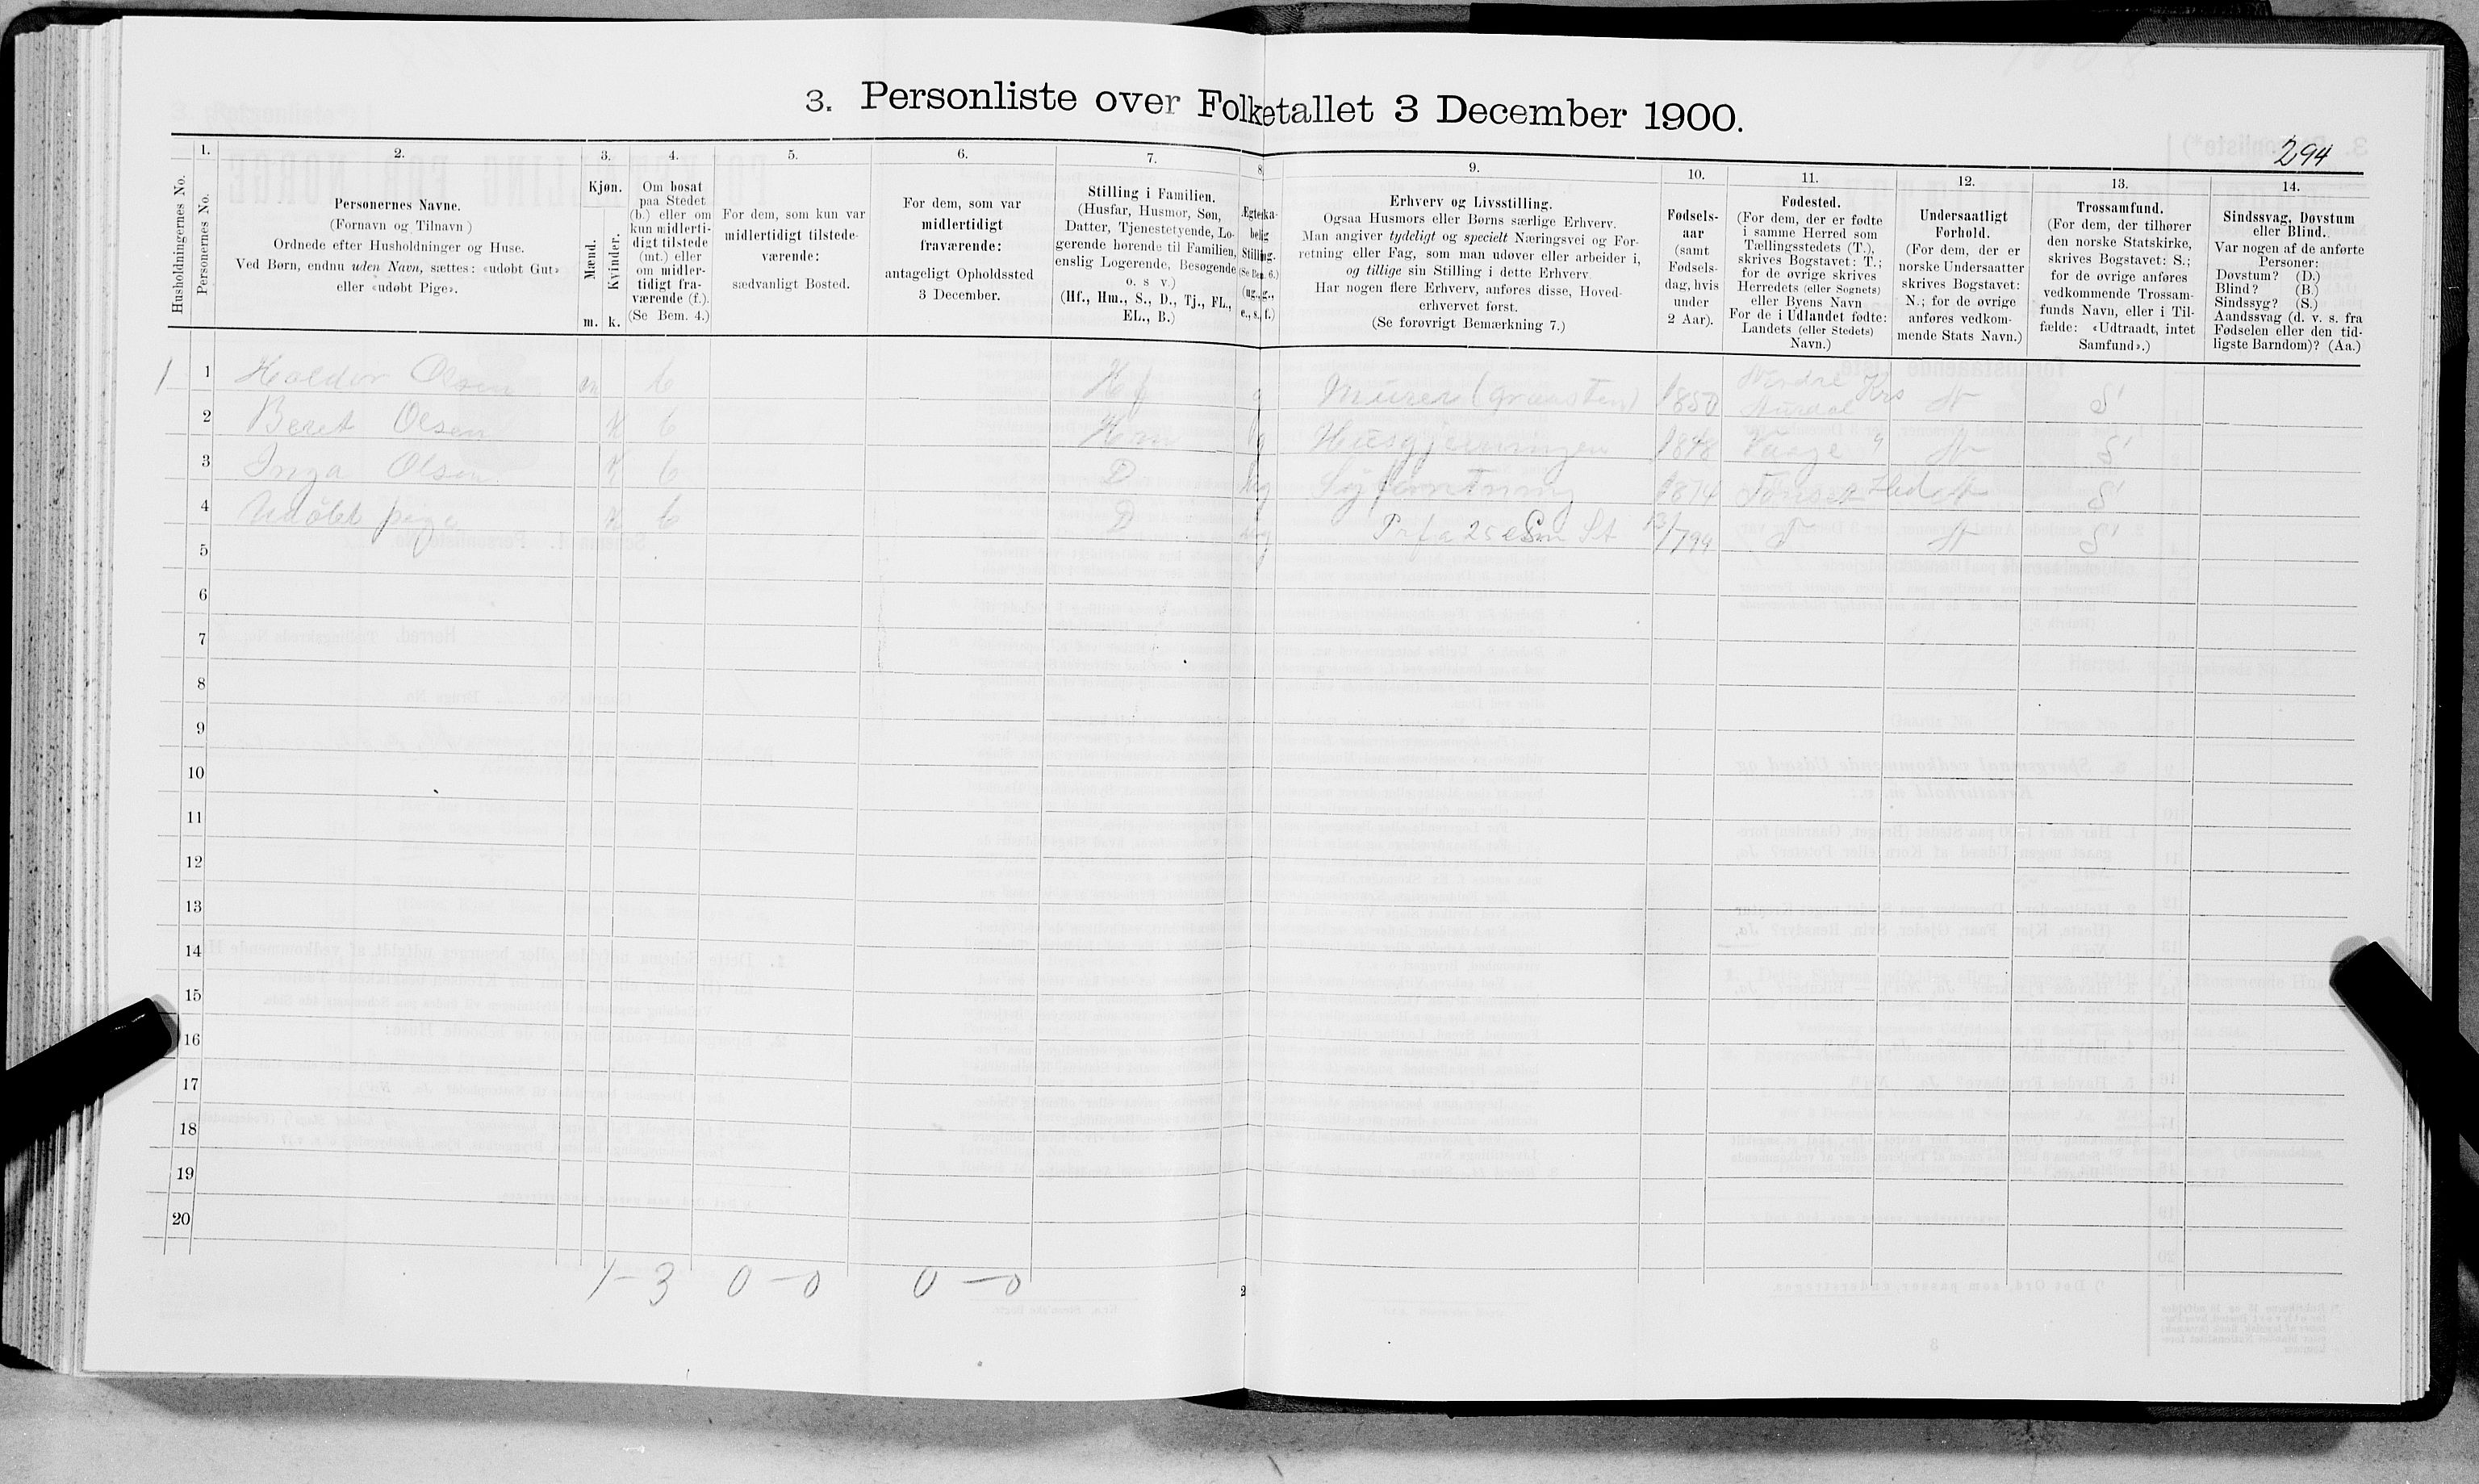 3. Personliste over Folketallet 3 December 1900.
294
Husholdningernes No.
1.
Personernes No.
2.
Personernes Navne.
(Fornavn og Tilnavn)
Ordnede efter Husholdninger og Huse.
Ved Børn, endnu uden Navn, sættes: «udøbt Gut»
eller «udøbt Pige».
3.
Kjøn.
Mænd.
Kvinder.
m. k.
4.
Om bosat
paa Stedet
(b.) eller om
kun midlerti-
digt tilstede
(mt.) eller
om midler-
tidigt fra-
værende (f.).
(Se Bem. 4.)
5.
For dem, som kun var
midlertidigt tilstede-
værende:
sædvanligt Bosted.
6.
For dem, som var
midlertidigt
fraværende:
antageligt Opholdssted
3 December.
7.
Stilling i Familien.
(Husfar, Husmor, Søn,
Datter, Tjenestetyende, Lo-
gerende hørende til Familien,
enslig Logerende, Besøgende
o. s v.)
(Hf., Hm., S., D., Tj., FL.,
EL., B.)
8.
Ægteska-
belig
Stilling.
(Se Bem. 6.)
(ug., g.,
e., s., f.)
9.
Erhverv og Livsstilling.
Ogsaa Husmors eller Børns særlige Erhverv.
Man angiver tydeligt og specielt Næringsvei og For-
retning eller Fag, som man udøver eller arbeider i,
og tillige sin Stilling i dette Erhverv.
Har nogen flere Erhverv, anføres disse, Hoved-
erhvervet først.
(Se forøvrigt Bemærkning 7.)
10.
Fødsels-
aar
(samt
Fødsels-
dag, hvis
under
2 Aar).
11.
Fødested.
(For dem, der er fødte
i samme Herred som
Tællingsstedets (T.),
skrives Bogstavet: T.;
for de øvrige skrives
Herredets (eller Sognets)
eller Byens Navn
For de i Udlandet fødte:
Landets (eller Stedets)
Navn.)
12.
Undersaatligt
Forhold.
(For dem, der er
norske Undersaatter
skrives Bogstavet:
N.; for de øvrige
anføres vedkom-
mende Stats Navn.)
13.
Trossamfund.
(For dem, der tilhører
den norske Statskirke,
skrives Bogstavet: S.;
for de øvrige anføres
vedkommende Trossam-
funds Navn, eller i Til-
fælde: «Udtraadt, intet
Samfund».)
14.
Sindssvag, Døvstum
eller Blind.
Var nogen af de anførte
Personer:
Døvstum? (D.)
Blind? (B.)
Sindssyg? (S.)
Aandssvag (d. v. s. fra
Fødselen eller den tid-
ligste Barndom)? (Aa.)
1 1 Haldor Olsen m b Hf g Murer (graasten) 1850 Nordre Aurdal Krs N S
2 Beret Olsen k b Hm g Husgjerningen 1848 Vaage " N S
3 Inga Olsen k b D ug Syforretning 1874 Tønset Hed N S
4 Udøbt pige k b D ug T N S
5
6
7
8
9
10
11
12
13
14
15
16
17
18
19
20
1 - 3 0 - 0 0 - 0
2